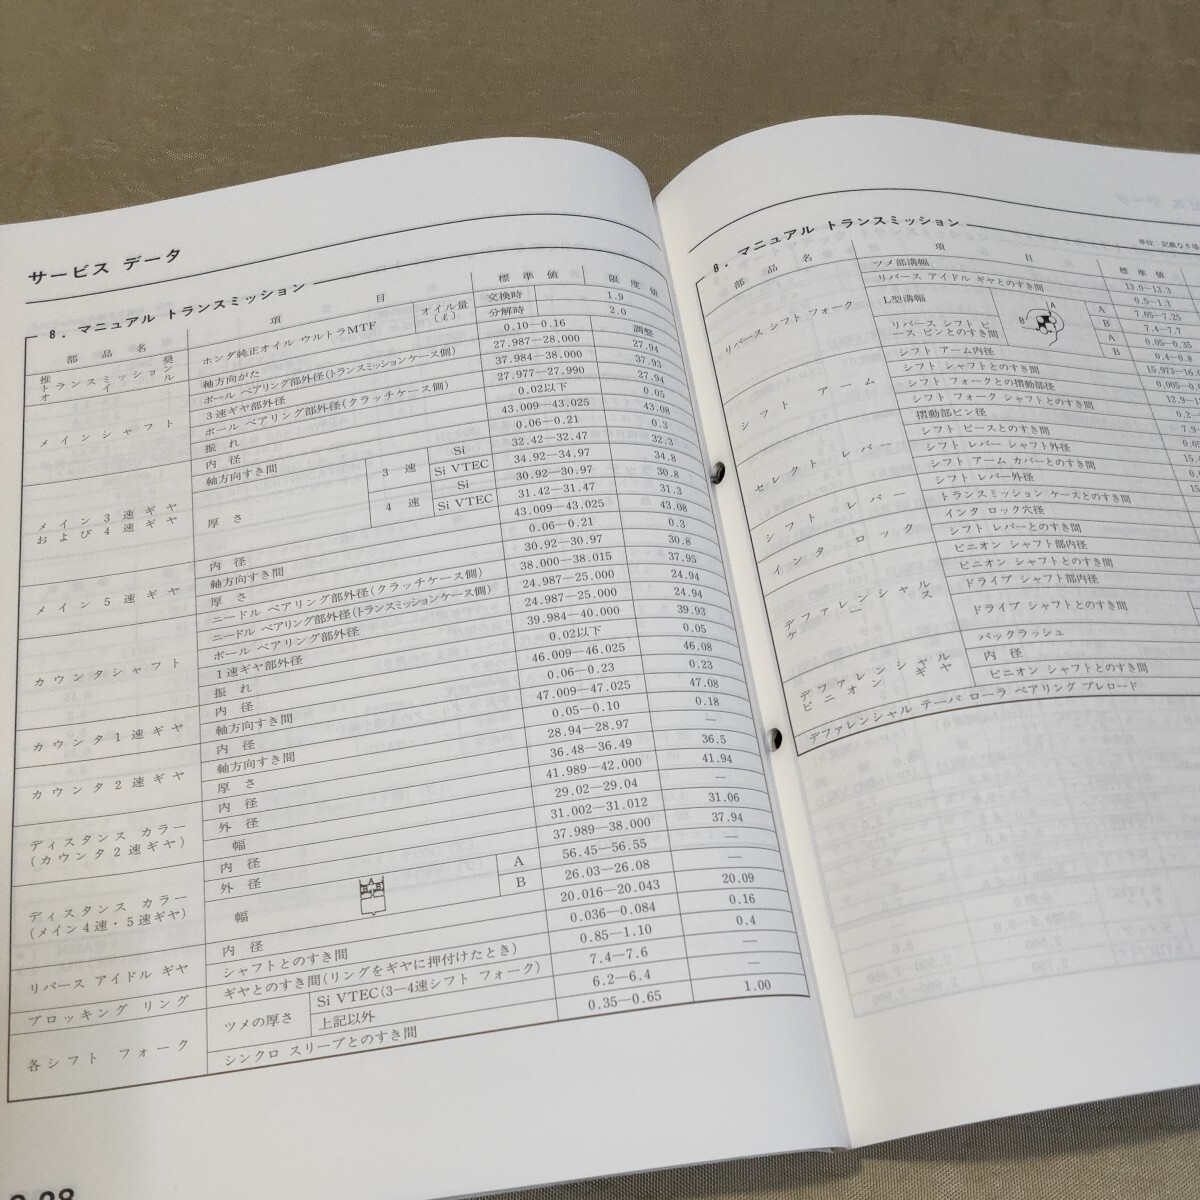 サービス データ
8. マニュアル トランスミッション
部品名 項 目 標準値 限度値
推奨トランスミッションオイル ホンダ純正オイル ウルトラMTF オイル量(ℓ) 交換時 1.9
分解時 2.0
メインシャフト 軸方向がた 0.10—0.16 調整
ボール ベアリング部外径(トランスミッションケース側) 27.987—28.000 27.94
3速ギヤ部外径 37.984—38.000 37.93
ボール ベアリング部外径(クラッチケース側) 27.977—27.990 27.94
振れ 0.02以下 0.05
メイン3速ギヤおよび4速ギヤ 内径 43.009—43.025 43.08
軸方向すき間 0.06—0.21 0.3
厚さ 3速 Si 32.42—32.47 32.3
Si VTEC 34.92—34.97 34.8
4速 Si 30.92—30.97 30.8
Si VTEC 31.42—31.47 31.3
メイン5速ギヤ 内径 43.009—43.025 43.08
軸方向すき間 0.06—0.21 0.3
厚さ 30.92—30.97 30.8
カウンタシャフト ニードル ベアリング部外径(クラッチケース側) 38.000—38.015 37.95
ニードル ベアリング部外径(トランスミッションケース側) 24.987—25.000 24.94
ボール ベアリング部外径 24.987—25.000 24.94
1速ギヤ部外径 39.984—40.000 39.93
振れ 0.02以下 0.05
カウンタ1速ギヤ 内径 46.009—46.025 46.08
軸方向すき間 0.06—0.23 0.23
カウンタ2速ギヤ 内径 47.009—47.025 47.08
軸方向すき間 0.05—0.10 0.18
厚さ 28.94—28.97 —
ディスタンス カラー(カウンタ2速ギヤ) 内径 36.48—36.49 36.5
外径 41.989—42.000 41.94
幅 29.02—29.04 —
ディスタンス カラー(メイン4速・5速ギヤ) 内径 31.002—31.012 31.06
外径 37.989—38.000 37.94
幅 A 56.45—56.55 —
B 26.03—26.08 —
リバース アイドル ギヤ 内径 20.016—20.043 20.09
シャフトとのすき間 0.036—0.084 0.16
ブロッキング リング ギヤとのすき間(リングをギヤに押付けたとき) 0.85—1.10 0.4
各シフト フォーク ツメの厚さ Si VTEC(3—4速シフト フォーク) 7.4—7.6 —
上記以外 6.2—6.4 —
シンクロ スリーブとのすき間 0.35—0.65 1.00
8. マニュアル トランスミッション
単位:記載なき場
部品名 項 目 標準値
リバース シフト フォーク ツメ部溝幅 13.0—13.3
リバース アイドル ギヤとのすき間 0.5—1.1
L型溝幅 A 7.05—7.25
B 7.4—7.7
リバース シフト ピース ピンとのすき間 A 0.05—0.35
B 0.4—0.8
シフト アーム シフト アーム内径 15.973—16.0
シフト シャフトとのすき間 0.005—0.0
シフト フォークとの摺動部径 12.9—1
シフト フォーク シャフトとのすき間 0.2—
セレクト レバー 摺動部ピン径 7.9—
シフト ピースとのすき間 0.05
シフト レバー シャフト外径 15.
シフト アーム カバーとのすき間 0.
シフト レバー シフト レバー外径 15
トランスミッション ケースとのすき間
インタ ロック インタ ロック穴径
シフト レバーとのすき間
デファレンシャル ケース ピニオン シャフト部内径
ピニオン シャフトとのすき間
ドライブ シャフト部内径
ドライブ シャフトとのすき間
デファレンシャル ピニオン ギヤ バックラッシュ
内径
ピニオン シャフトとのすき間
デファレンシャル テーパ ローラ ベアリング プレロード